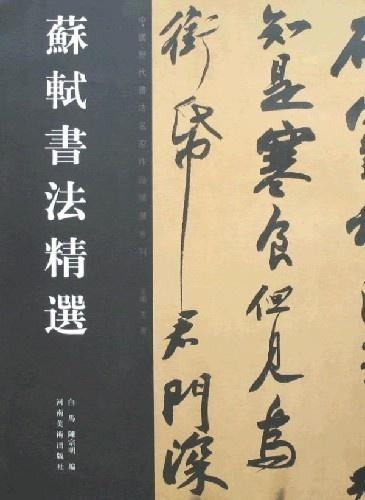 蘇軾書法精選
白馬 陳宗明 編
河南美術出版社
中國歷代書法名家作品精選系列
知是寒食但見烏
銜帋君門深